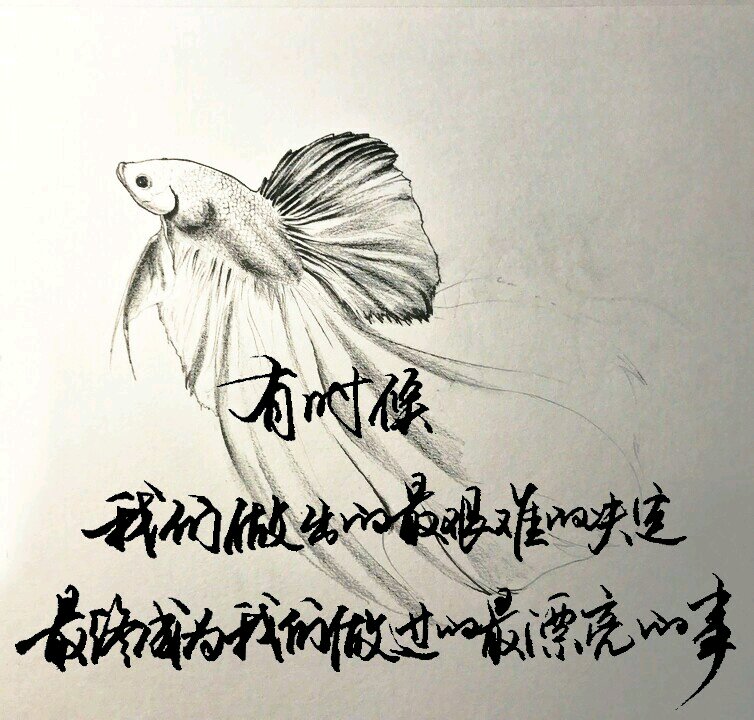 有时候
我们做出的最艰难的决定
最终成为我们做过的最漂亮的事